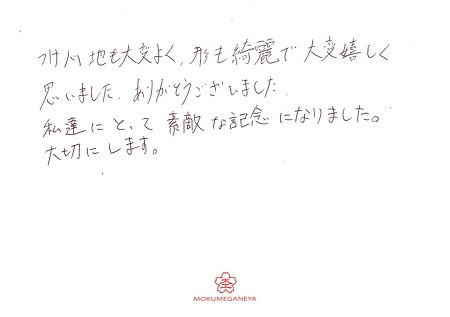 つけ心地も大変よく、形も綺麗で大変嬉しく
思いました。ありがとうございました。
私達にとって素敵な記念になりました。
大切にします。
MOKUMEGANEYA